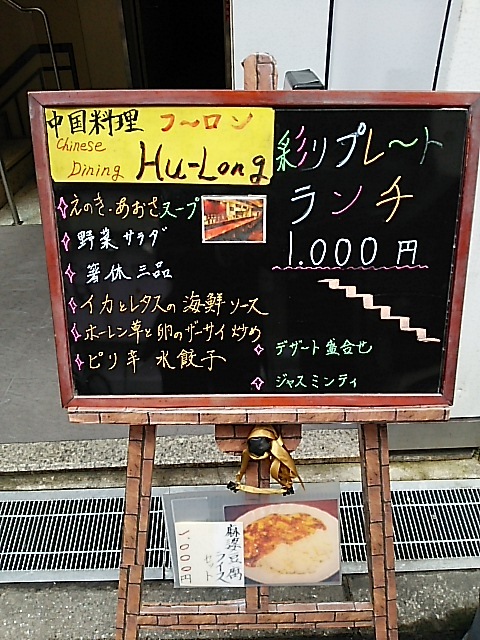 中国料理 フーロン
Chinese
Dining Hu-Long
えのき・あおさスープ
野菜サラダ
箸休三品
イカとレタスの海鮮ソース
ホーレン草と卵のザーサイ炒め
ピリ辛水餃子
彩りプレート
ランチ
1.000円
デザート盛合せ
ジャスミンティ
麻婆豆腐
ライス
セット
1,000円